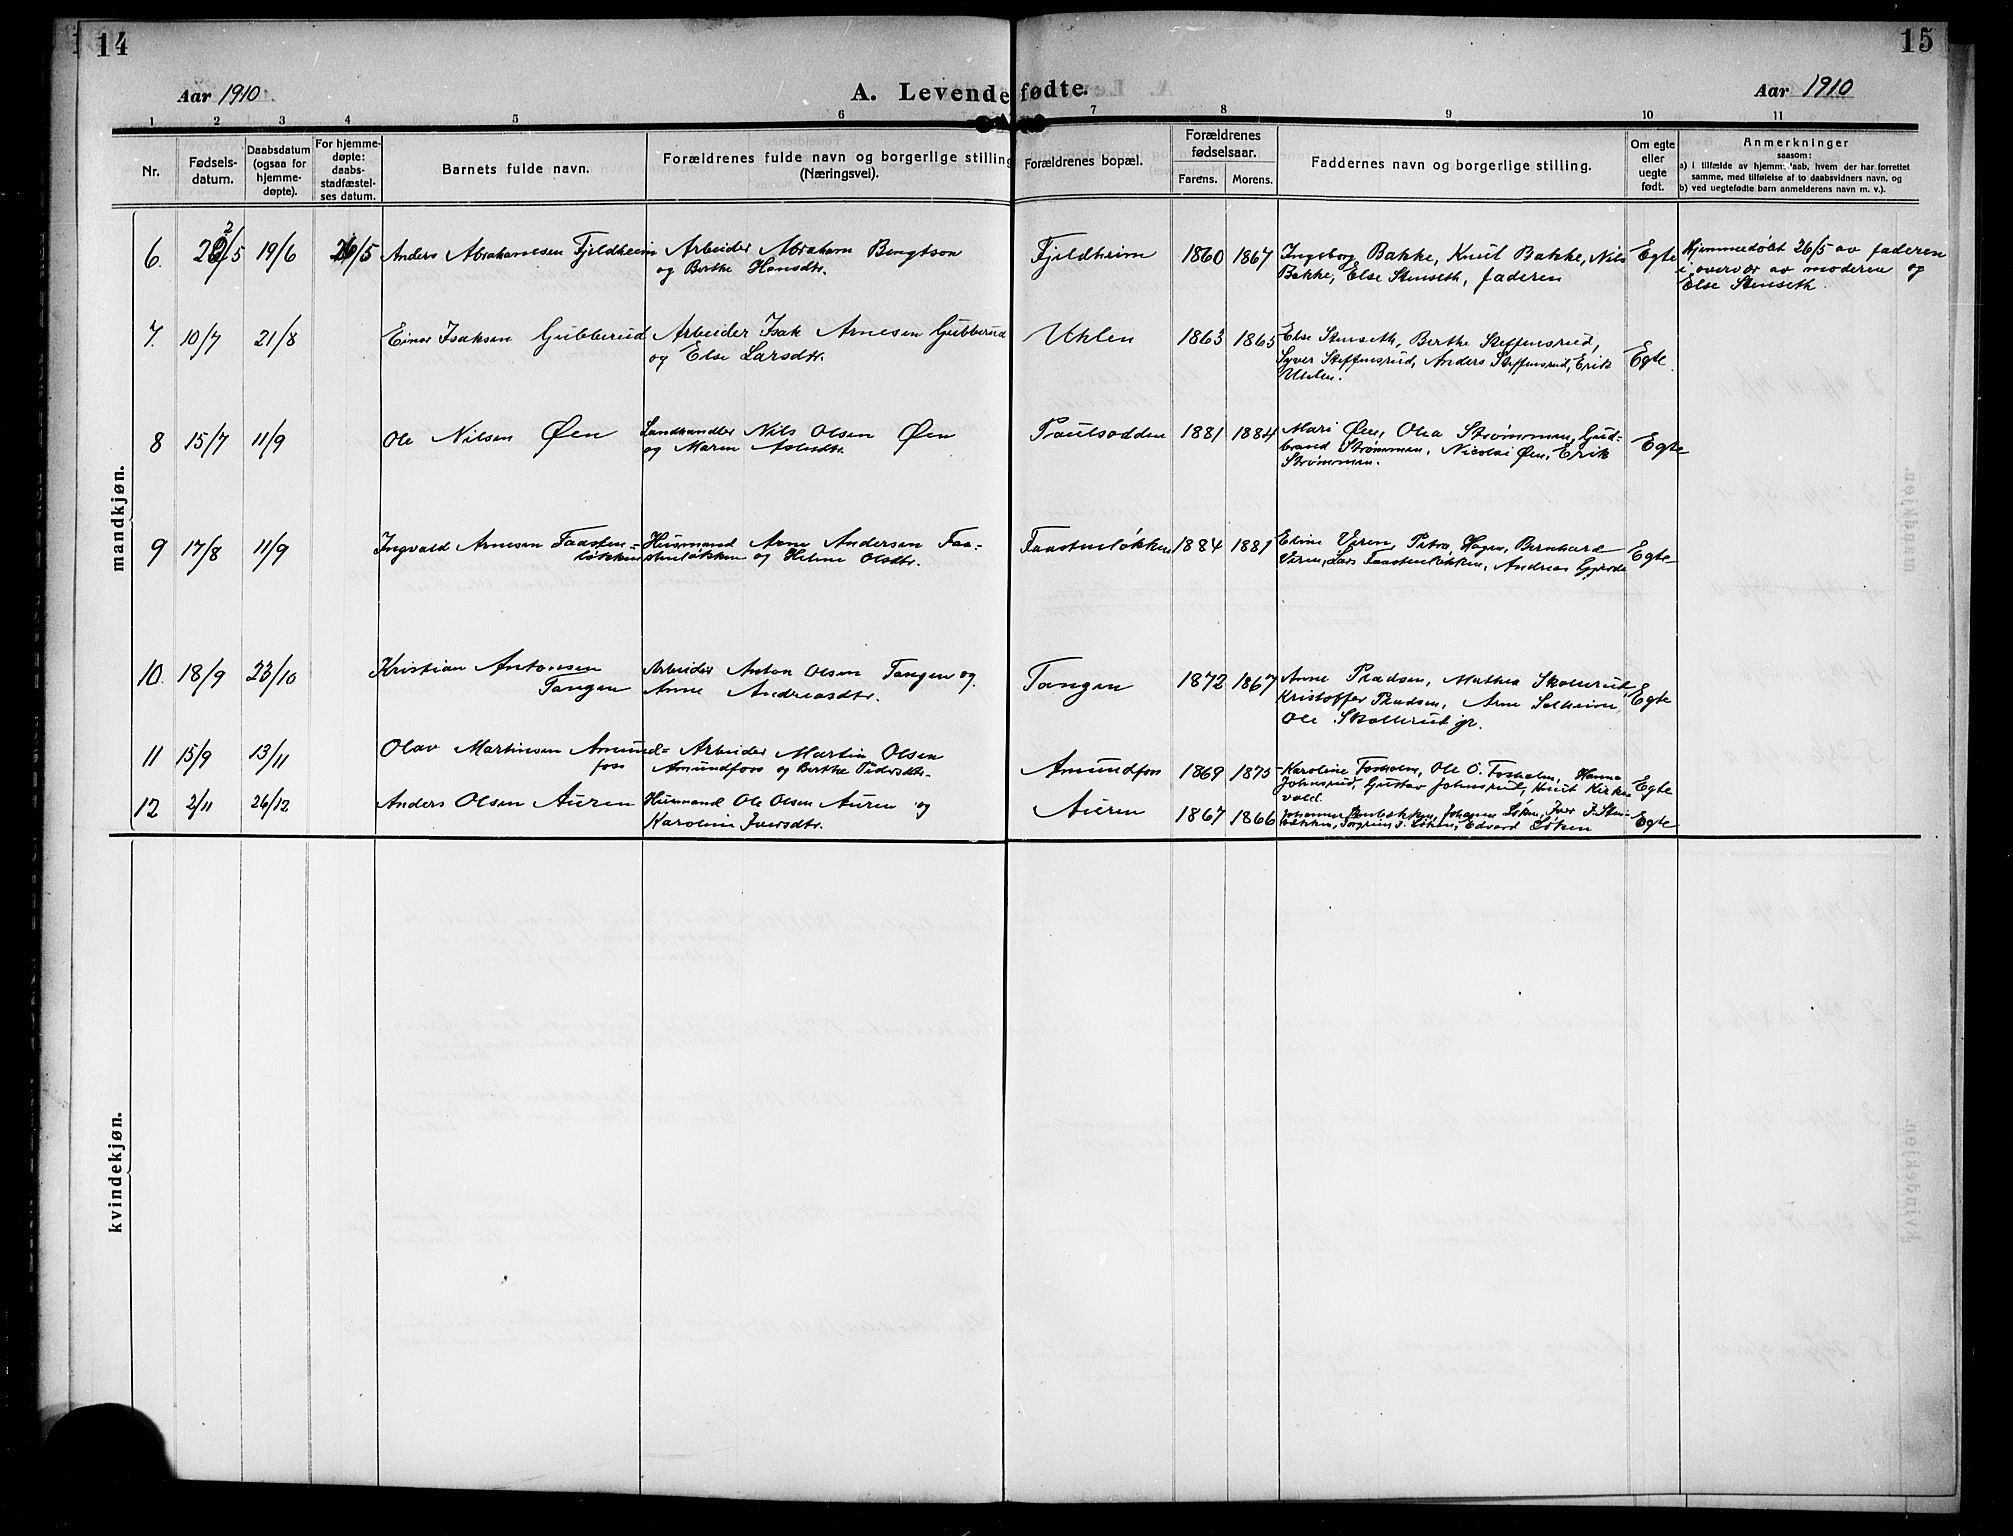 14
15
Aar 1910.
A. Levendefødte.
Aar 1910
1 2 3 4 5 6 7 8 9 10 11
Nr.
Fødsels-
datum.
Daabsdatum
(ogsaa for
hjemme-
døpte).
For hjemme-
døpte:
daabs-
stadfæstel-
ses datum.
Barnets fulde navn.
Forældrenes fulde navn og borgerlige stilling
(Næringsvei).
Forældrenes bopæl.
Forældrenes
fødselsaar.
Farens. Morens.
Faddernes navn og borgerlige stilling.
Om egte
eller
uegte
født.
Anmerkninger
saasom:
a) i tilfælde av hjemmedaab, hvem der har forrettet
samme, med tilføielse af to daabsvidners navn, og
b) ved uegtefødte barn anmelderens navn m. v.).
mandkjøn.
6. 22/5 19/6 26/5 Anders Abrahamsen Fjeldheim Arbeider Abraham Bengtson
og Berthe Hansdtr.
Fjeldheim 1860 1867 Ingeborg Bakke, Knut Bakke, Nils
Bakke, Else Stenseth, faderen
Egte Hjemmedøbt 26/5 av faderen
i overvær av moderen og
Else Stenseth.
7. 10/7 21/8 Einar Isaksen Gubberud Arbeider Isak Arnesen Gubberud
og Else Larsdtr.
Uhlen 1863 1865 Else Stenseth, Berthe Steffensrud,
Syver Steffensrud, Anders Steffensrud, Erik
Uhlen.
Egte
8 15/7 11/9 Ole Nilsen Øen Landhandler Nils Olsen Øen
og Maren
Paulsodden 1881 1884 Mari Øen, Olea Strømmen, Gud-
brand Strømmen, Nicolai Øen, Erik
Strømmen.
Egte
9 17/8 11/9 Ingvald Arnesen Faasten-
løkken
Husmand Arne Andersen Faa-
stenløkken og Helene Olsdtr.
Faastenløkken 1884 1881 Eline Viren, Petra Hagen, Bernhard
Viren, Lars Faastenløkken, Andreas
Egte
10. 18/9 23/10 Kristian Antonsen
Tangen
Arbeider Anton Olsen Tangen og
Anne Andreasdtr.
Tangen 1872 1867 Anne Pladsen, Mathea Skollerud,
Kristoffer Pladsen, Arne Solheim,
Ole Skollerud jr.
Egte
11 15/9 13/11 Olav Martinsen Amund-
foss
Arbeider Martin Olsen
Amundfoss og Berthe Pedersdtr.
Amundfoss 1869 1875 Karoline Fosholm, Ole O. Fosholm, Hanna
Johnsrud, Gustav Johnsrud, Knut Kirke-
vold.
Egte
12 2/11 26/12 Anders Olsen Auren Husmand Ole Olsen Auren og
Karoline Iversdtr.
Auren 1867 1866 Johannes Løken, Iver J. Sten-
bækken, J. Løken, Edvard Løken
Egte
kvindekjøn.